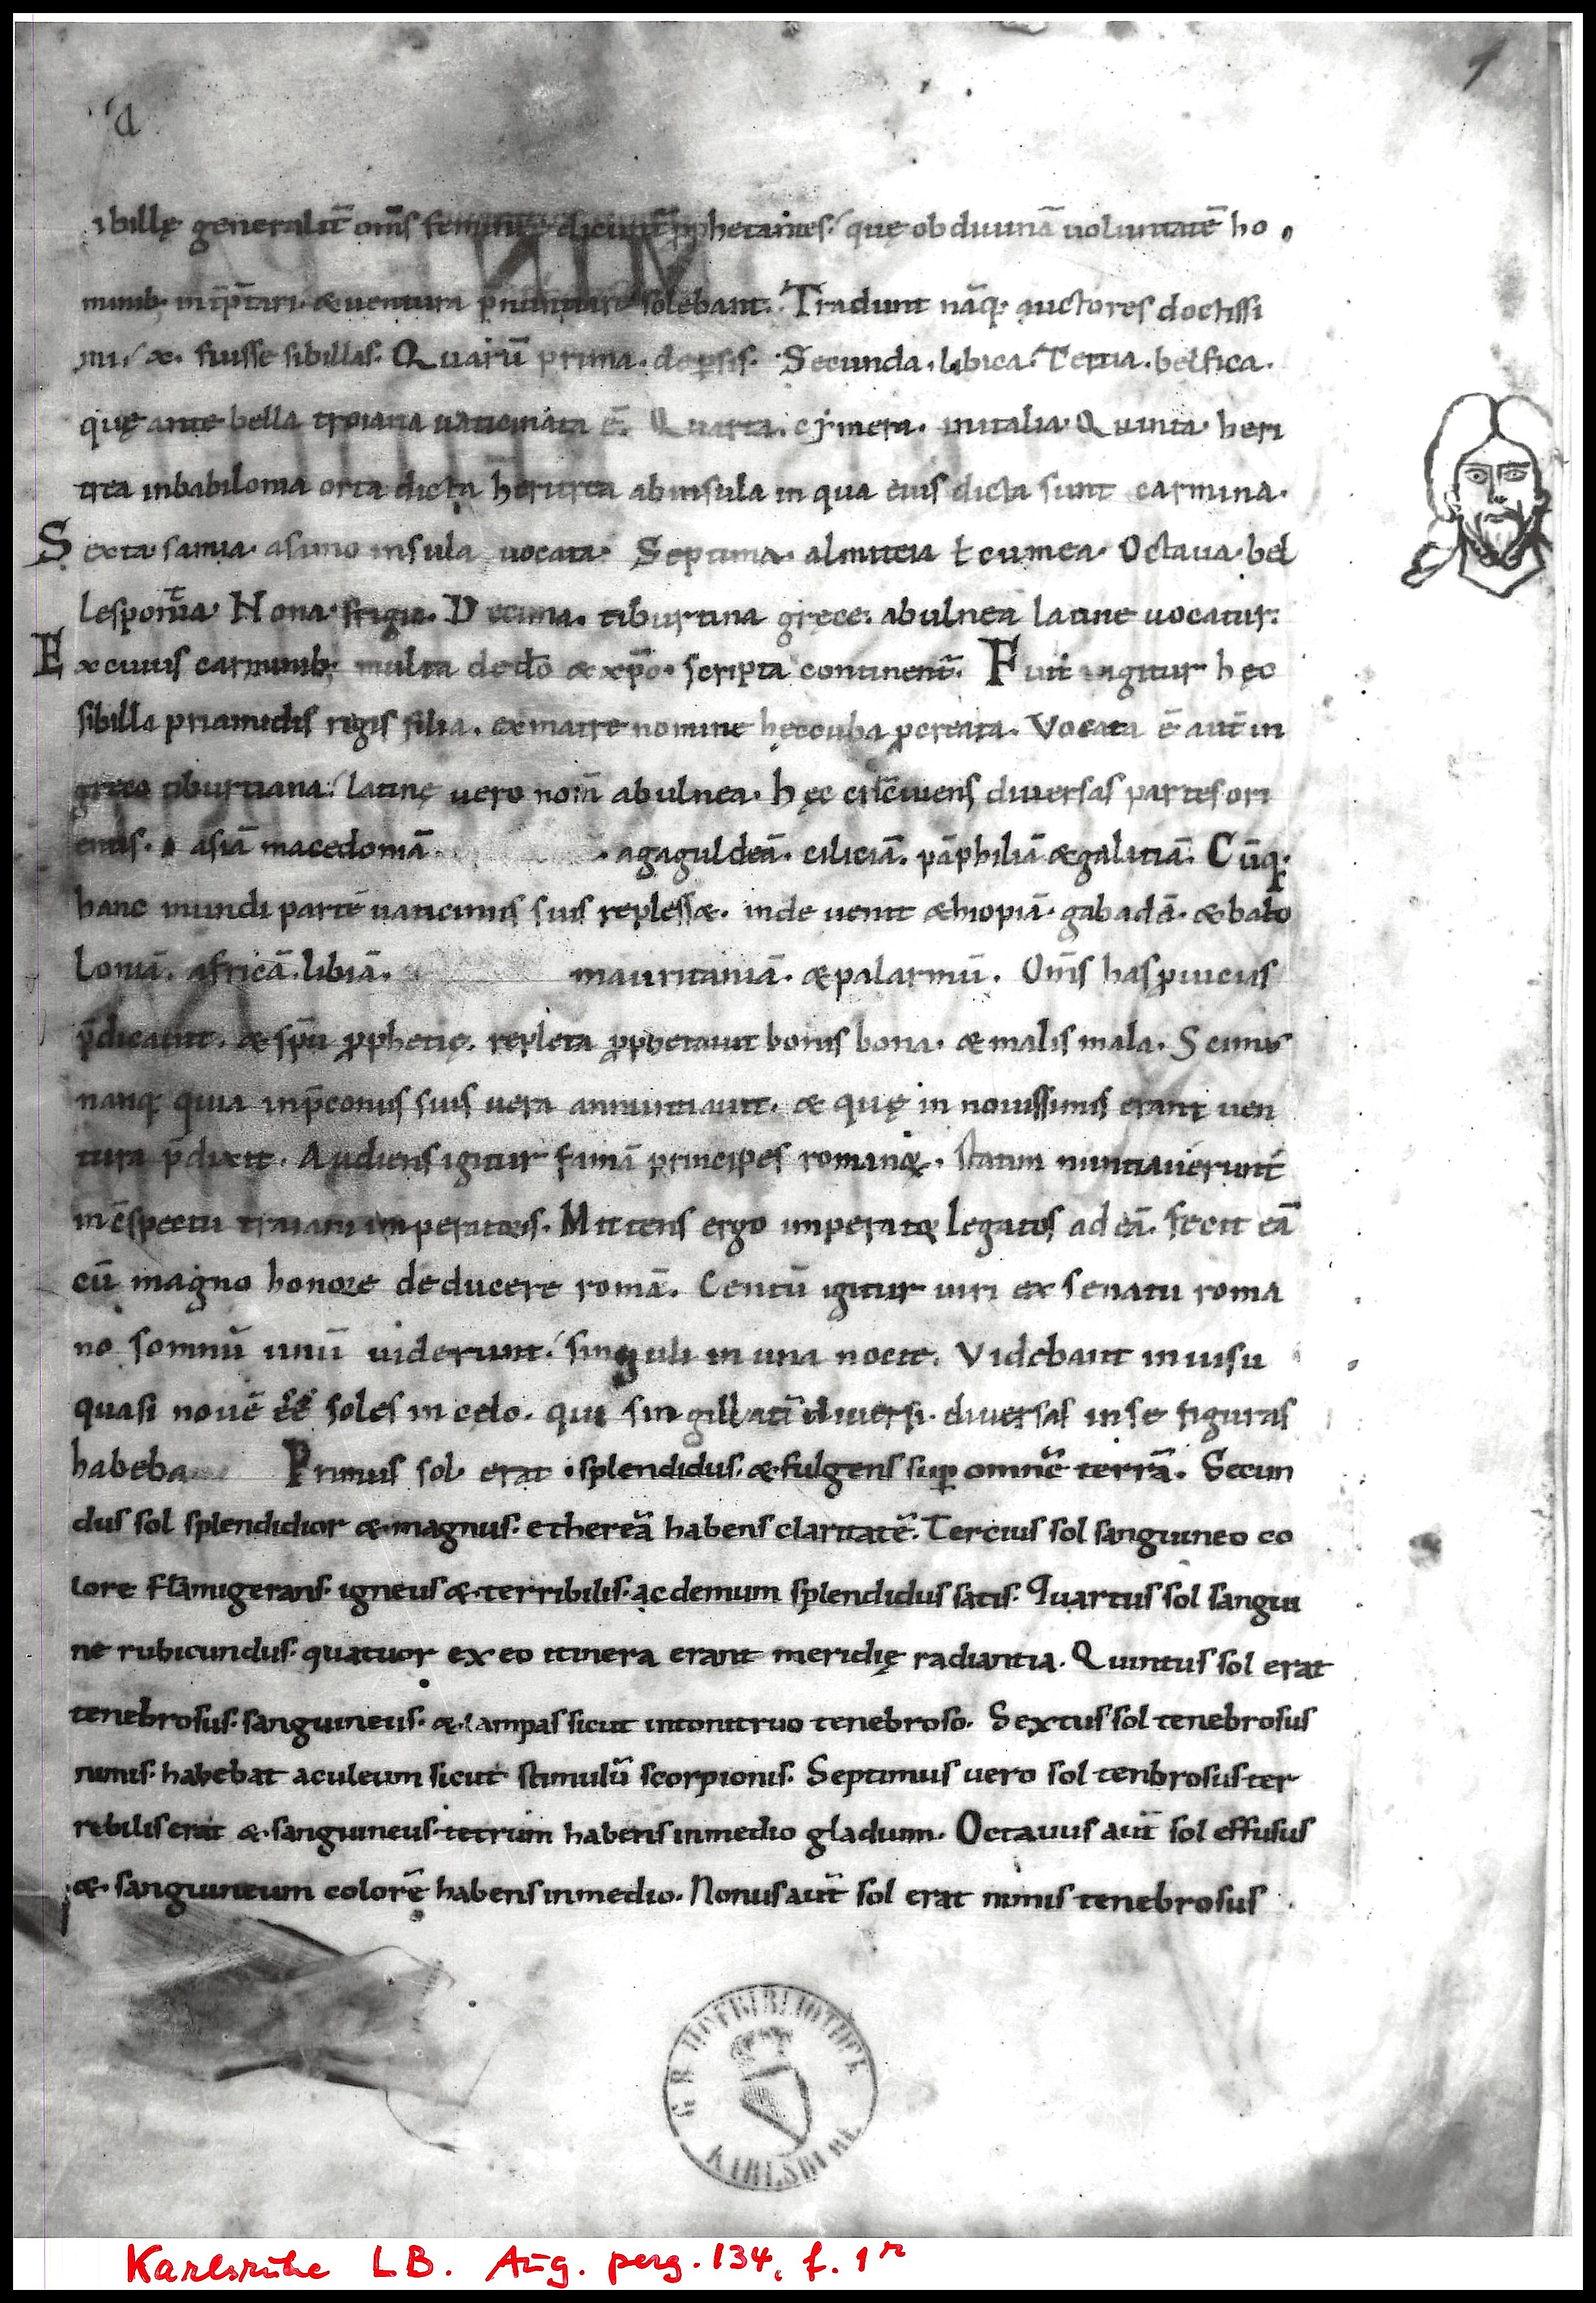 1
a
ibillę generalit̄ om̄s feminę dicunt̄ ꝓphetantes. quę ob diuinā uoluntatē ho
minib; int̄p̄tari. & uentura p̄nuntiare solebant. Tradunt nāq; auctores doctissi
mi. x. fuisse sibillas. Quarū prima. de ꝑsis. Secunda. libica. Tertia. belfica.
quę ante bella troiana uaticinata ē. Quarta. cimera. in italia. Quinta. heri
trea in babilonia orta dicta heritrea ab insula in qua eius dicta sunt carmina.
Sexta samia. a samo insula uocata. Septima. almiteia ł cumea. Octaua. bel
lespontia. Nona. frigia. Decima. tiburtina gręce. abulnea latine uocatur.
Ex cuius carminib; multa de dō & xp̄o. scripta continent̄. Fuit igitur hęc
sibilla priamidis regis filia. ex matre nomine hęccuba ꝓcreata. Vocata ē aut̄ in
greco tiburtiana. latinę uero nom̄ abulnea. hęc circ̄uiens diuersas partes ori
entis. asiā macedoniā . agaguldeā. ciliciā. pāphiliā & galitiā. Cūq;
hanc mundi partē uaticiniis suis repless&. inde uenit æthiopiā. gabadā. & babi
loniā. africā. libiā. mauritaniā. & palarmū. Om̄s has ꝓuicias
p̄dicauit. & sp̄u ꝓphetię. repleta ꝓphetauit bonis bona. & malis mala. Scimus
nanq; quia in p̄coniis suis uera annuntiauit. & quę in nouissimis erant uen
tura p̄dixit. Audiens igitur famā principes romanę. statim nuntiauerunt
in c̄spectu traiani imperatoris. Mittens ergo imperator legatos ad eā. fecit eā
cū magno honore deducere romā. Centū igitur uiri ex senatu roma
no somnū unū uiderunt. singuli in una nocte. Videbant in uisu
quasi nouē ēē soles in celo. qui singillatī diuersi. diuersas in se figuras
habeba Primus sol erat splendidus. & fulgens suꝑ omnē terrā. Secun
dus sol splendidior & magnus. ethereā habens claritatē. Tercius sol sanguineo co
lore flāmigerans. igneus & terribilis. ac demum splendidus satis. Quartus sol sangui
ne rubicundus. quatuor ex eo itinera erant meridię radiantia. Quintus sol erat
tenebrosus. sanguineus. & lampas sicut in tonitruo tenebroso. Sextus sol tenebrosus
nimis. habebat aculeum sicut stimulū scorpionis. Septimus uero sol tenbrosus ter
ribilis erat & sanguineus. tetrum habens in medio gladium. Octauus aut̄ sol effusus
& sanguineum colorē habens in medio. Nonus aut̄ sol erat nimis tenebrosus
G. B. HOFBIBLIOTHEK
KARLSRUHE
Karlsruhe LB. Aug. perg. 134, f. 1r